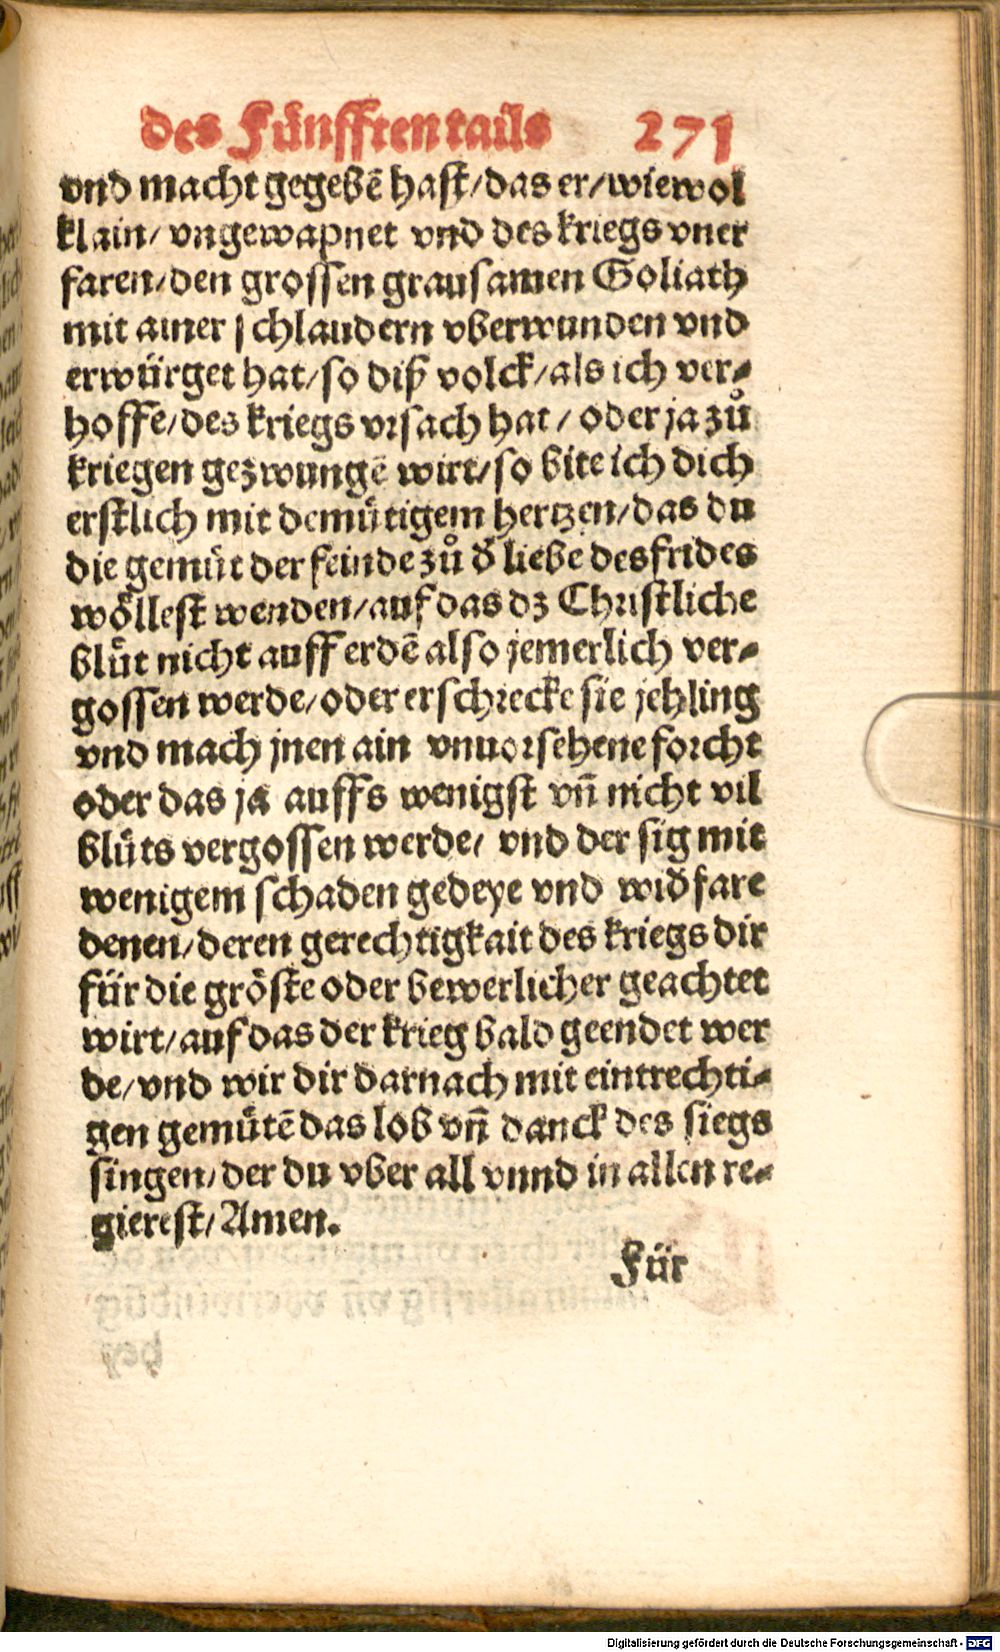 des Fünfften tails 271
vnd macht gegebē hast/das er/wiewol
klain/ vngewapnet vnd des kriegs vner
faren/den grossen grausamen Goliath
mit ainer schlaudern vberwunden vnd
erwürget hat/so diß volck/als ich ver⸗
hoffe/des kriegs vrsach hat/ oder ja zů
kriegen gezwungē wirt/so bite ich dich
erstlich mit demütigem hertzen/das du
die gemüt der feinde zů ď liebe des frides
wöllest wenden/auf das dz Christliche
blüt nicht auff erdē also jemerlich ver⸗
gossen werde/oder erschrecke sie jehling
vnd mach jnen ain vnuorsehene forcht
oder das ja auffs wenigst vñ nicht vil
blüts vergossen werde/ vnd der sig mit
wenigem schaden gedeye vnd wiďfare
denen/deren gerechtigkait des kriegs dir
für die gröste oder bewerlicher geachtet
wirt/auf das der krieg bald geendet wer
de/vnd wir dir darnach mit eintrechti⸗
gen gemütē das lob vñ danck des siegs
singen/der du vber all vnnd in allen re⸗
gierest/Amen.
Für
Digitalisierung gefördert durch die Deutsche Forschungsgemeinschaft - DFG